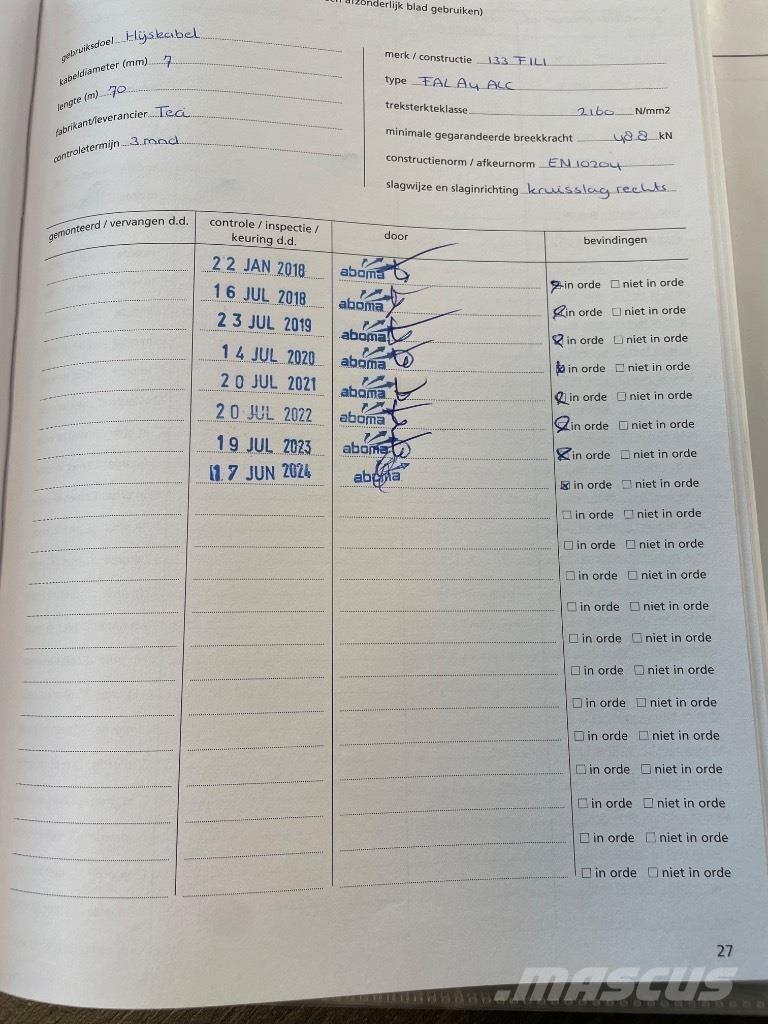 afzonderlijk blad gebruiken)
gebruiksdoel Hijskabel
kabeldiameter (mm) 7
lengte (m) 70
fabrikant/leverancier Teci
controletermijn 3 mnd
merk / constructie 133 FILI
type FAL A4 ALC
treksterkteklasse 2160 N/mm2
minimale gegarandeerde breekkracht 48.8 kN
constructienorm / afkeurnorm EN 10204
slagwijze en slaginrichting kruisslag rechts
gemonteerd / vervangen d.d. controle / inspectie / keuring d.d. door bevindingen
22 JAN 2018 aboma in orde niet in orde
16 JUL 2018 aboma in orde niet in orde
23 JUL 2019 aboma in orde niet in orde
14 JUL 2020 aboma in orde niet in orde
20 JUL 2021 aboma in orde niet in orde
20 JUL 2022 aboma in orde niet in orde
19 JUL 2023 aboma in orde niet in orde
17 JUN 2024 aboma in orde niet in orde
in orde niet in orde
in orde niet in orde
in orde niet in orde
in orde niet in orde
in orde niet in orde
in orde niet in orde
in orde niet in orde
in orde niet in orde
in orde niet in orde
in orde niet in orde
in orde niet in orde
in orde niet in orde
27
.mascus